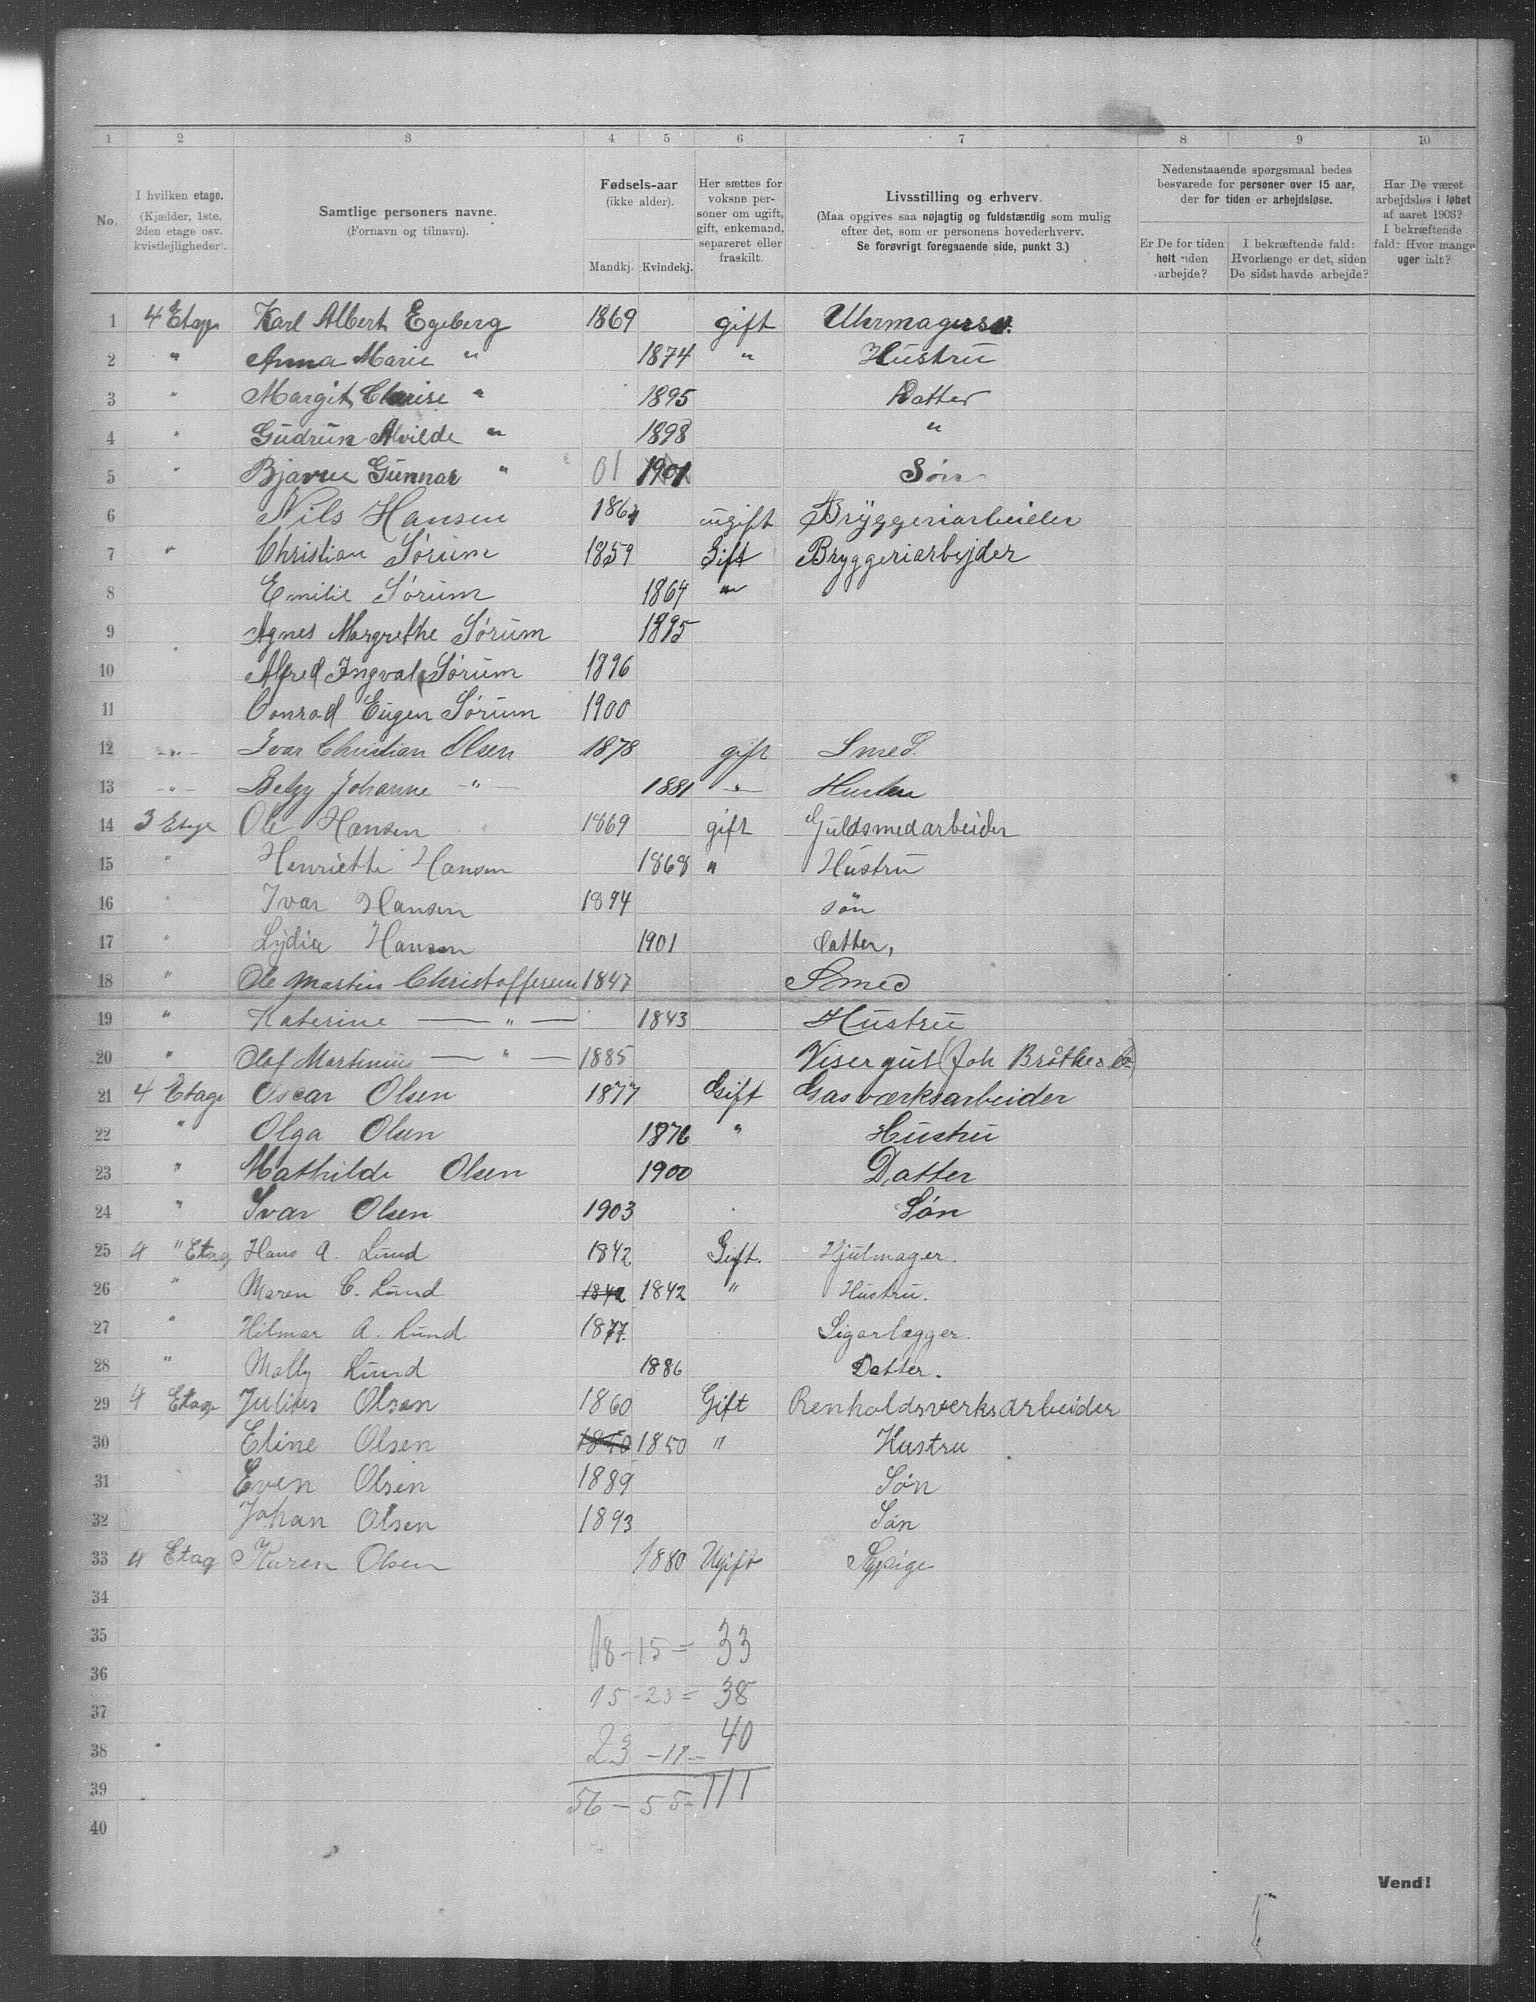 1 2 3 4 5 6 7 8 9 10
No.
I hvilken etage.
(Kjælder, 1ste,
2den etage osv.
kvistlejligheder).
Samtlige personers navne.
(Fornavn og tilnavn).
Fødsels-aar
(ikke alder).
Mandkj. Kvindekj.
Her sættes for
voksne per-
soner om ugift,
gift, enkemand,
separeret eller
fraskilt.
Livsstilling og erhverv.
(Maa opgives saa nøjagtig og fuldstærdig som mulig
efter det, som er personens hovederhverv.
Se forøvrigt foregaaende side, punkt 3.)
Nedenstaaende spørgsmaal bedes
besvarede for personer over 15 aar,
der for tiden er arbejdsløse.
Er De for tiden
helt uden
arbejde?
I bekræftende fald:
Hvorlænge er det, siden
De sidst havde arbejde?
Har De været
arbejdsløs i løbet
af aaret 1903?
I bekræftende
fald: Hvor mange
uger ialt?
1 4 Etage Karl Albert Egeberg 1869 gift
2 " Anna Marie " 1874 " Hustru
3 " Margit " 1895 Datter
4 " Gudrun Alvilde " 1898 "
5 " Bjarne Gunnar " 01 1901 Søn
6 Nils Hansen 1864 ugift Bryggeriarbeider
7 " Christian Sørum 1859 Gift Bryggeriarbejder
8 Emilie Sørum 1864 "
9 Agnes Margrethe Sørum 1895
10 Alfred Ingval Sørum 1896
11 Conrad Eugen Sørum 1900
12 -"- Ivar Christian Olsen 1878 gift Smed.
13 -"- Betzy Johanne -"- 1881 -"- Hustru
14 3 Etage Ole Hansen 1869 gift Guldsmedarbeider
15 " Henriette Hansen 1868 " Hustru
16 " Ivar Hansen 1894 søn
17 " Lydia Hansen 1901 datter,
18 " Ole Martin Christoffersen 1847 Smed
19 " Katerine —"— 1843 Hustru
20 " Olaf Martinius —"— 1885 Visergut (Joh
21 4 Etage Oscar Olsen 1877 Gift Gasværksarbeider
22 " Olga Olsen 1876 " Hustru
23 " Mathilde Olsen 1900 Datter
24 " Ivar Olsen 1903 Søn
25 4 " Etag Hans A. Lund 1842 Gift. Hjulmager.
26 " Maren C. Lund 1842 1842 " Hustru.
27 " Hilmar A. Lund 1877. Sigarlægger.
28 " Molly Lund 1886 Datter.
29 4 Etage Julius Olsen 1860 Gift Renholdsverksarbeider
30 Eline Olsen 1850 1850 " Hustru
31 Even Olsen 1889 Søn
32 Johan Olsen 1893 Søn
33 4 Etag Karen Olsen 1880 Ugift Sypige
34
35 18 - 15 = 33
36
37 15 - 23 = 38
38 23 - 17 - 40
39 56 - 55 - 111
40
Vend!